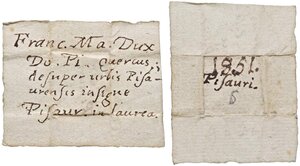 Franc. Ma. Dux
Do. Pi. quercus,
desuper urbis Pisa-
urensis insigne
Pisaur. in laurea.
1851.
Pisauri.